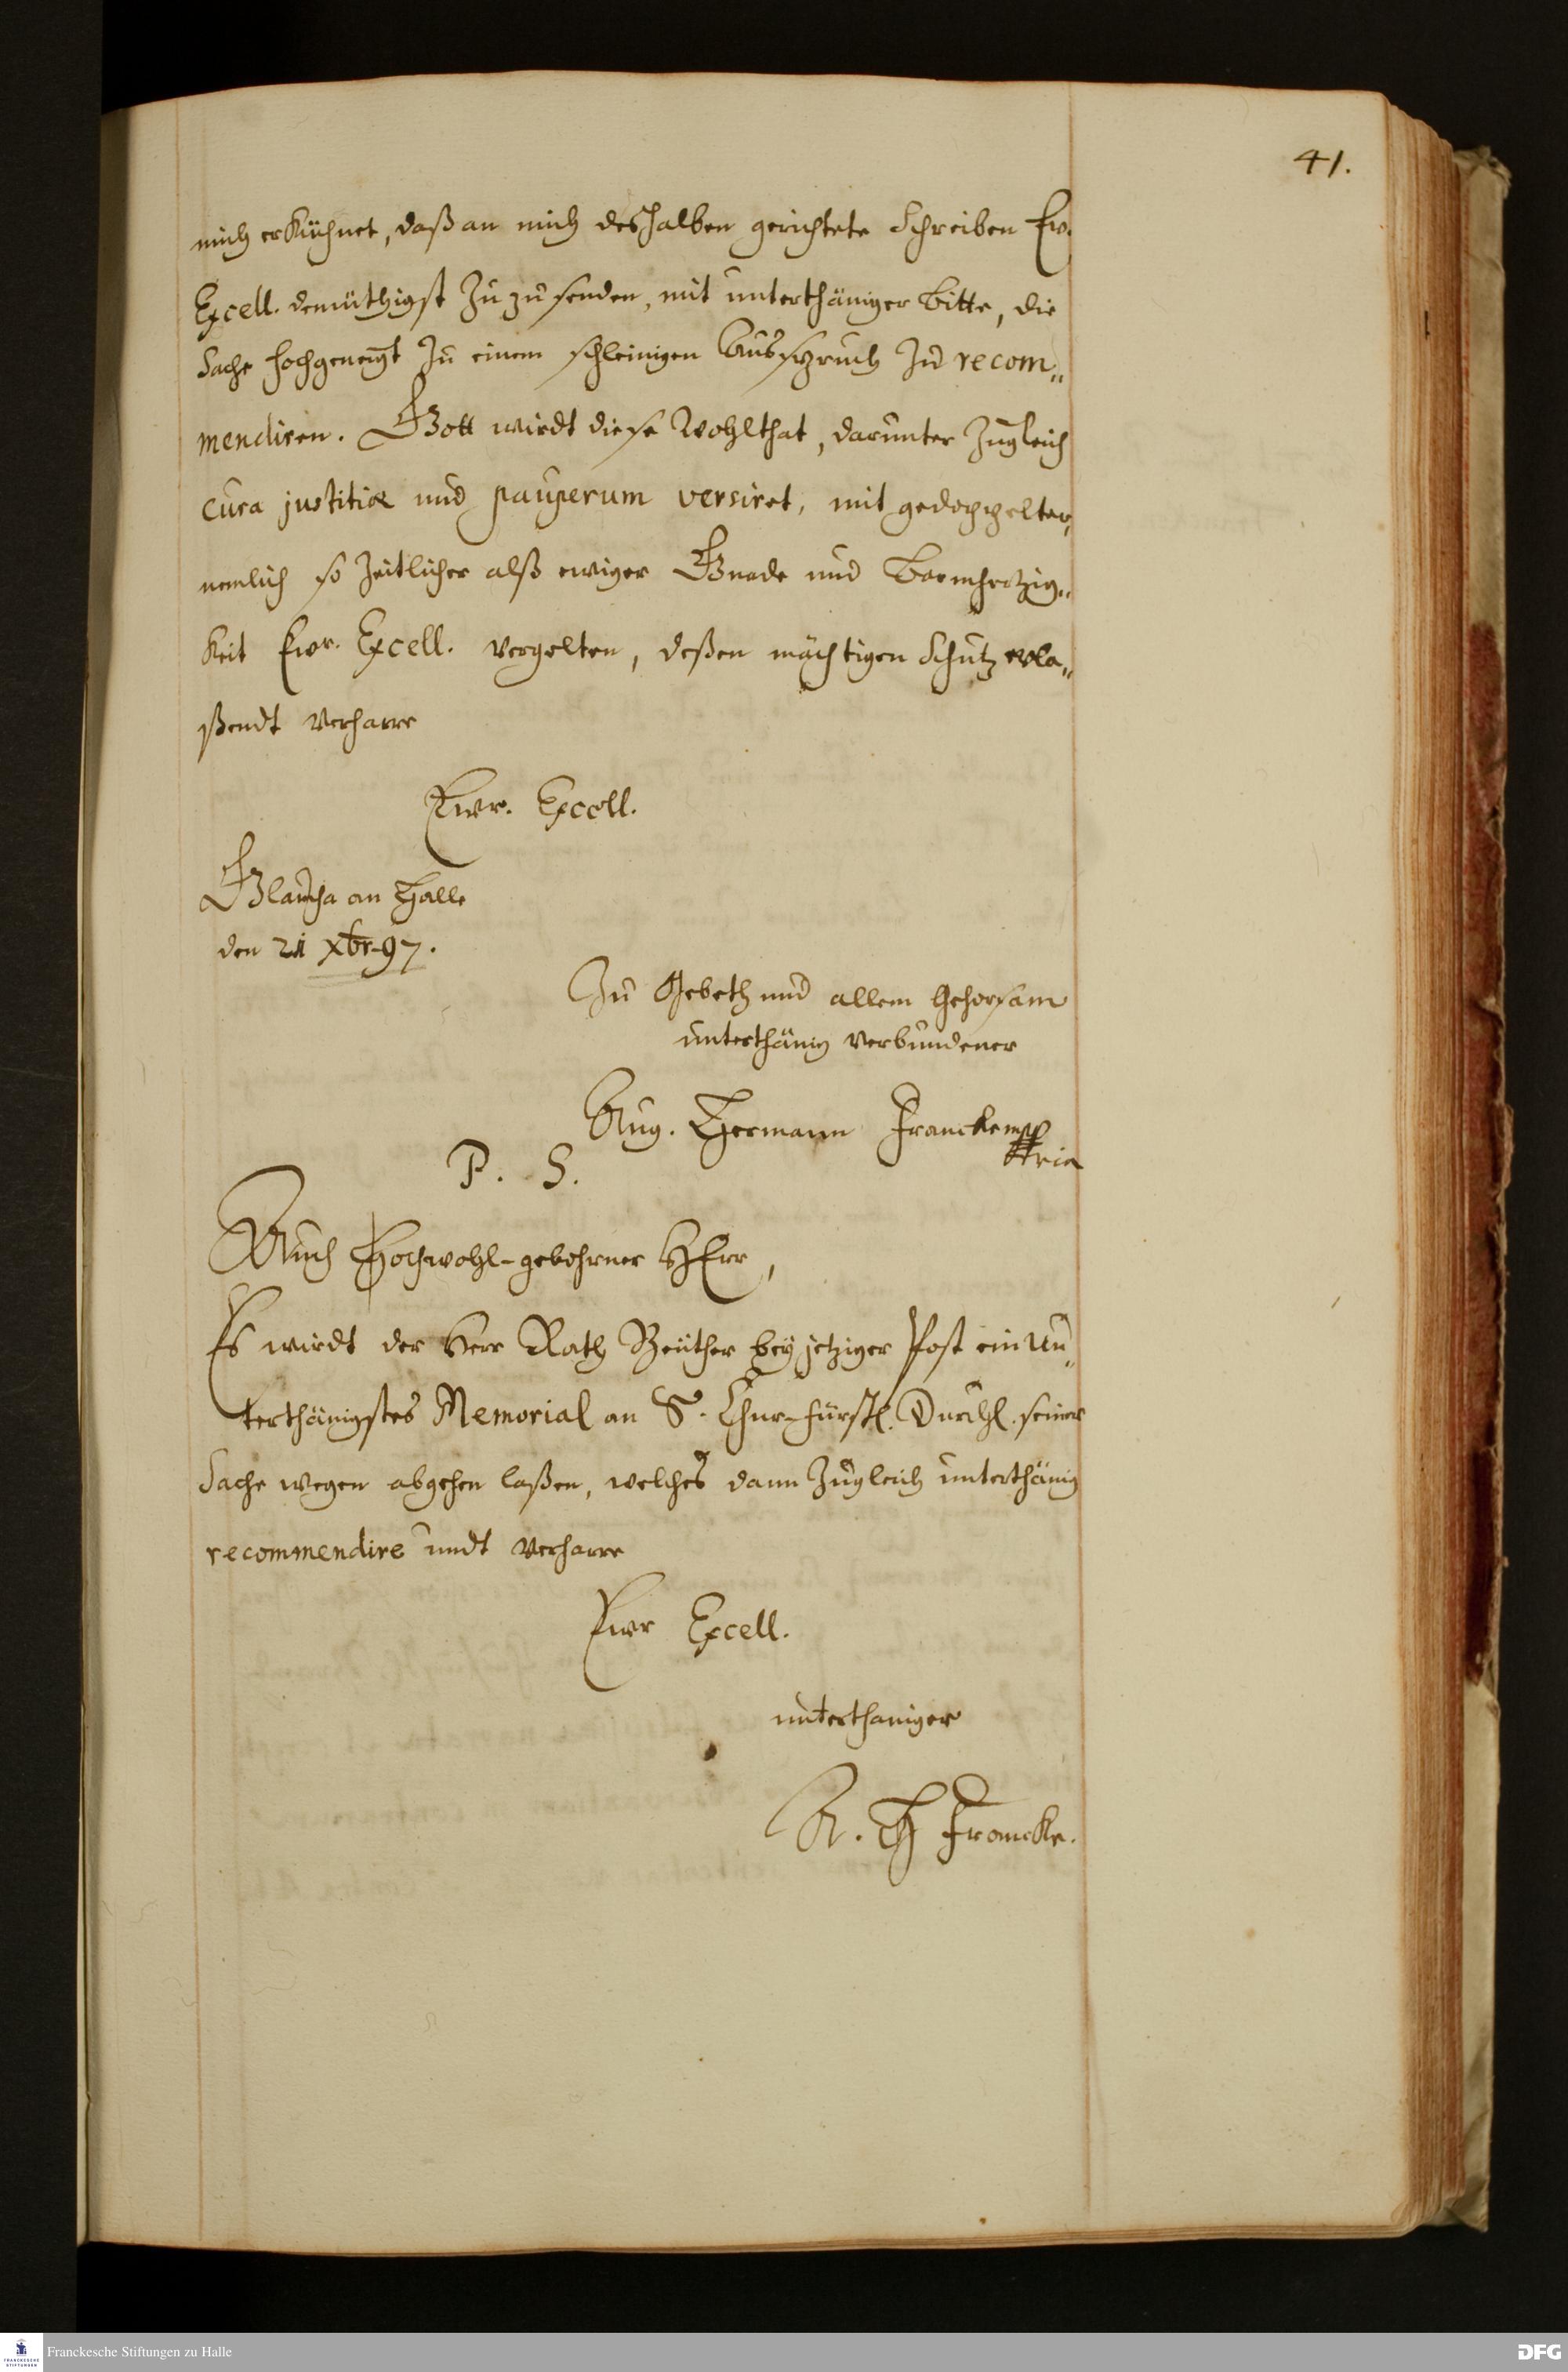 41.
mich erkühnet, daß an mich deshalben gerichtete Schreiben Ew.
Excell. demüthigst zu zu senden, mit unterthäniger Bitte, die
Sache hochgeneigt zu einem schleinigen Ausspruch zu recom„
mendiren. Gott wirdt diese Wohlthat, darunter zugleich
cura justitiæ und pauperum versiret, mit gedoppelter,
nemlich so zeitlicher alß ewiger Gnade und Barmhertzig„
keit Ewr. Excell. vergelten, deßen mächtigen Schutz erla„
ßendt verharre
Ewr. Excell.
Glaucha an Halle
den 21 Xbr. 97.
Zu Gebeth und allem Gehorsam
unterthänig verbundener
Aug. Hermann Francke mpp
P. S.
Auch Hochwohl-gebohrner HErr,
Es wirdt der Herr Rath Beuther bey jetziger Post ein un„
terthänigstes Memorial an S. Chur-fürstl. Durchl. seiner
Sache wegen abgehen laßen, welches dann zugleich unterthänig
recommendire undt verharre
Ewr Excell.
unterthaniger
A. H Francke.
Franckesche Stiftungen zu Halle
FRANCKESCHE STIFTUNGEN
DFG